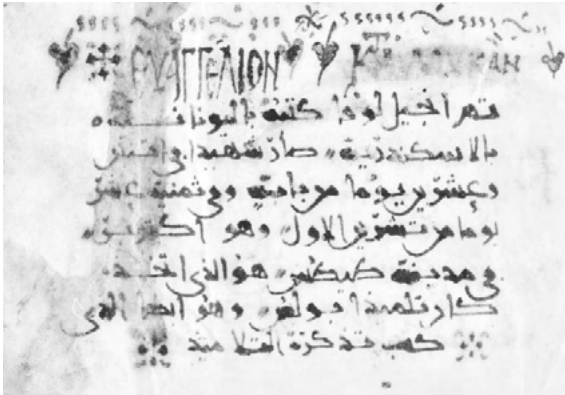 ΕΥΑΓΓΕΛΙΟΝ ΚΑΝ
تم انجيل لوقا كتبه باليونانيه
بالاسكندرية صار شهيدا في اثنين
وعشرين يوما من بابه وفي ثمنية عشر
يوما من تشرين الاول وهو
في مدينة هو الذي
كان تلميذا بولس وهو ايضا الذي
كتب تذكرة التلاميذ